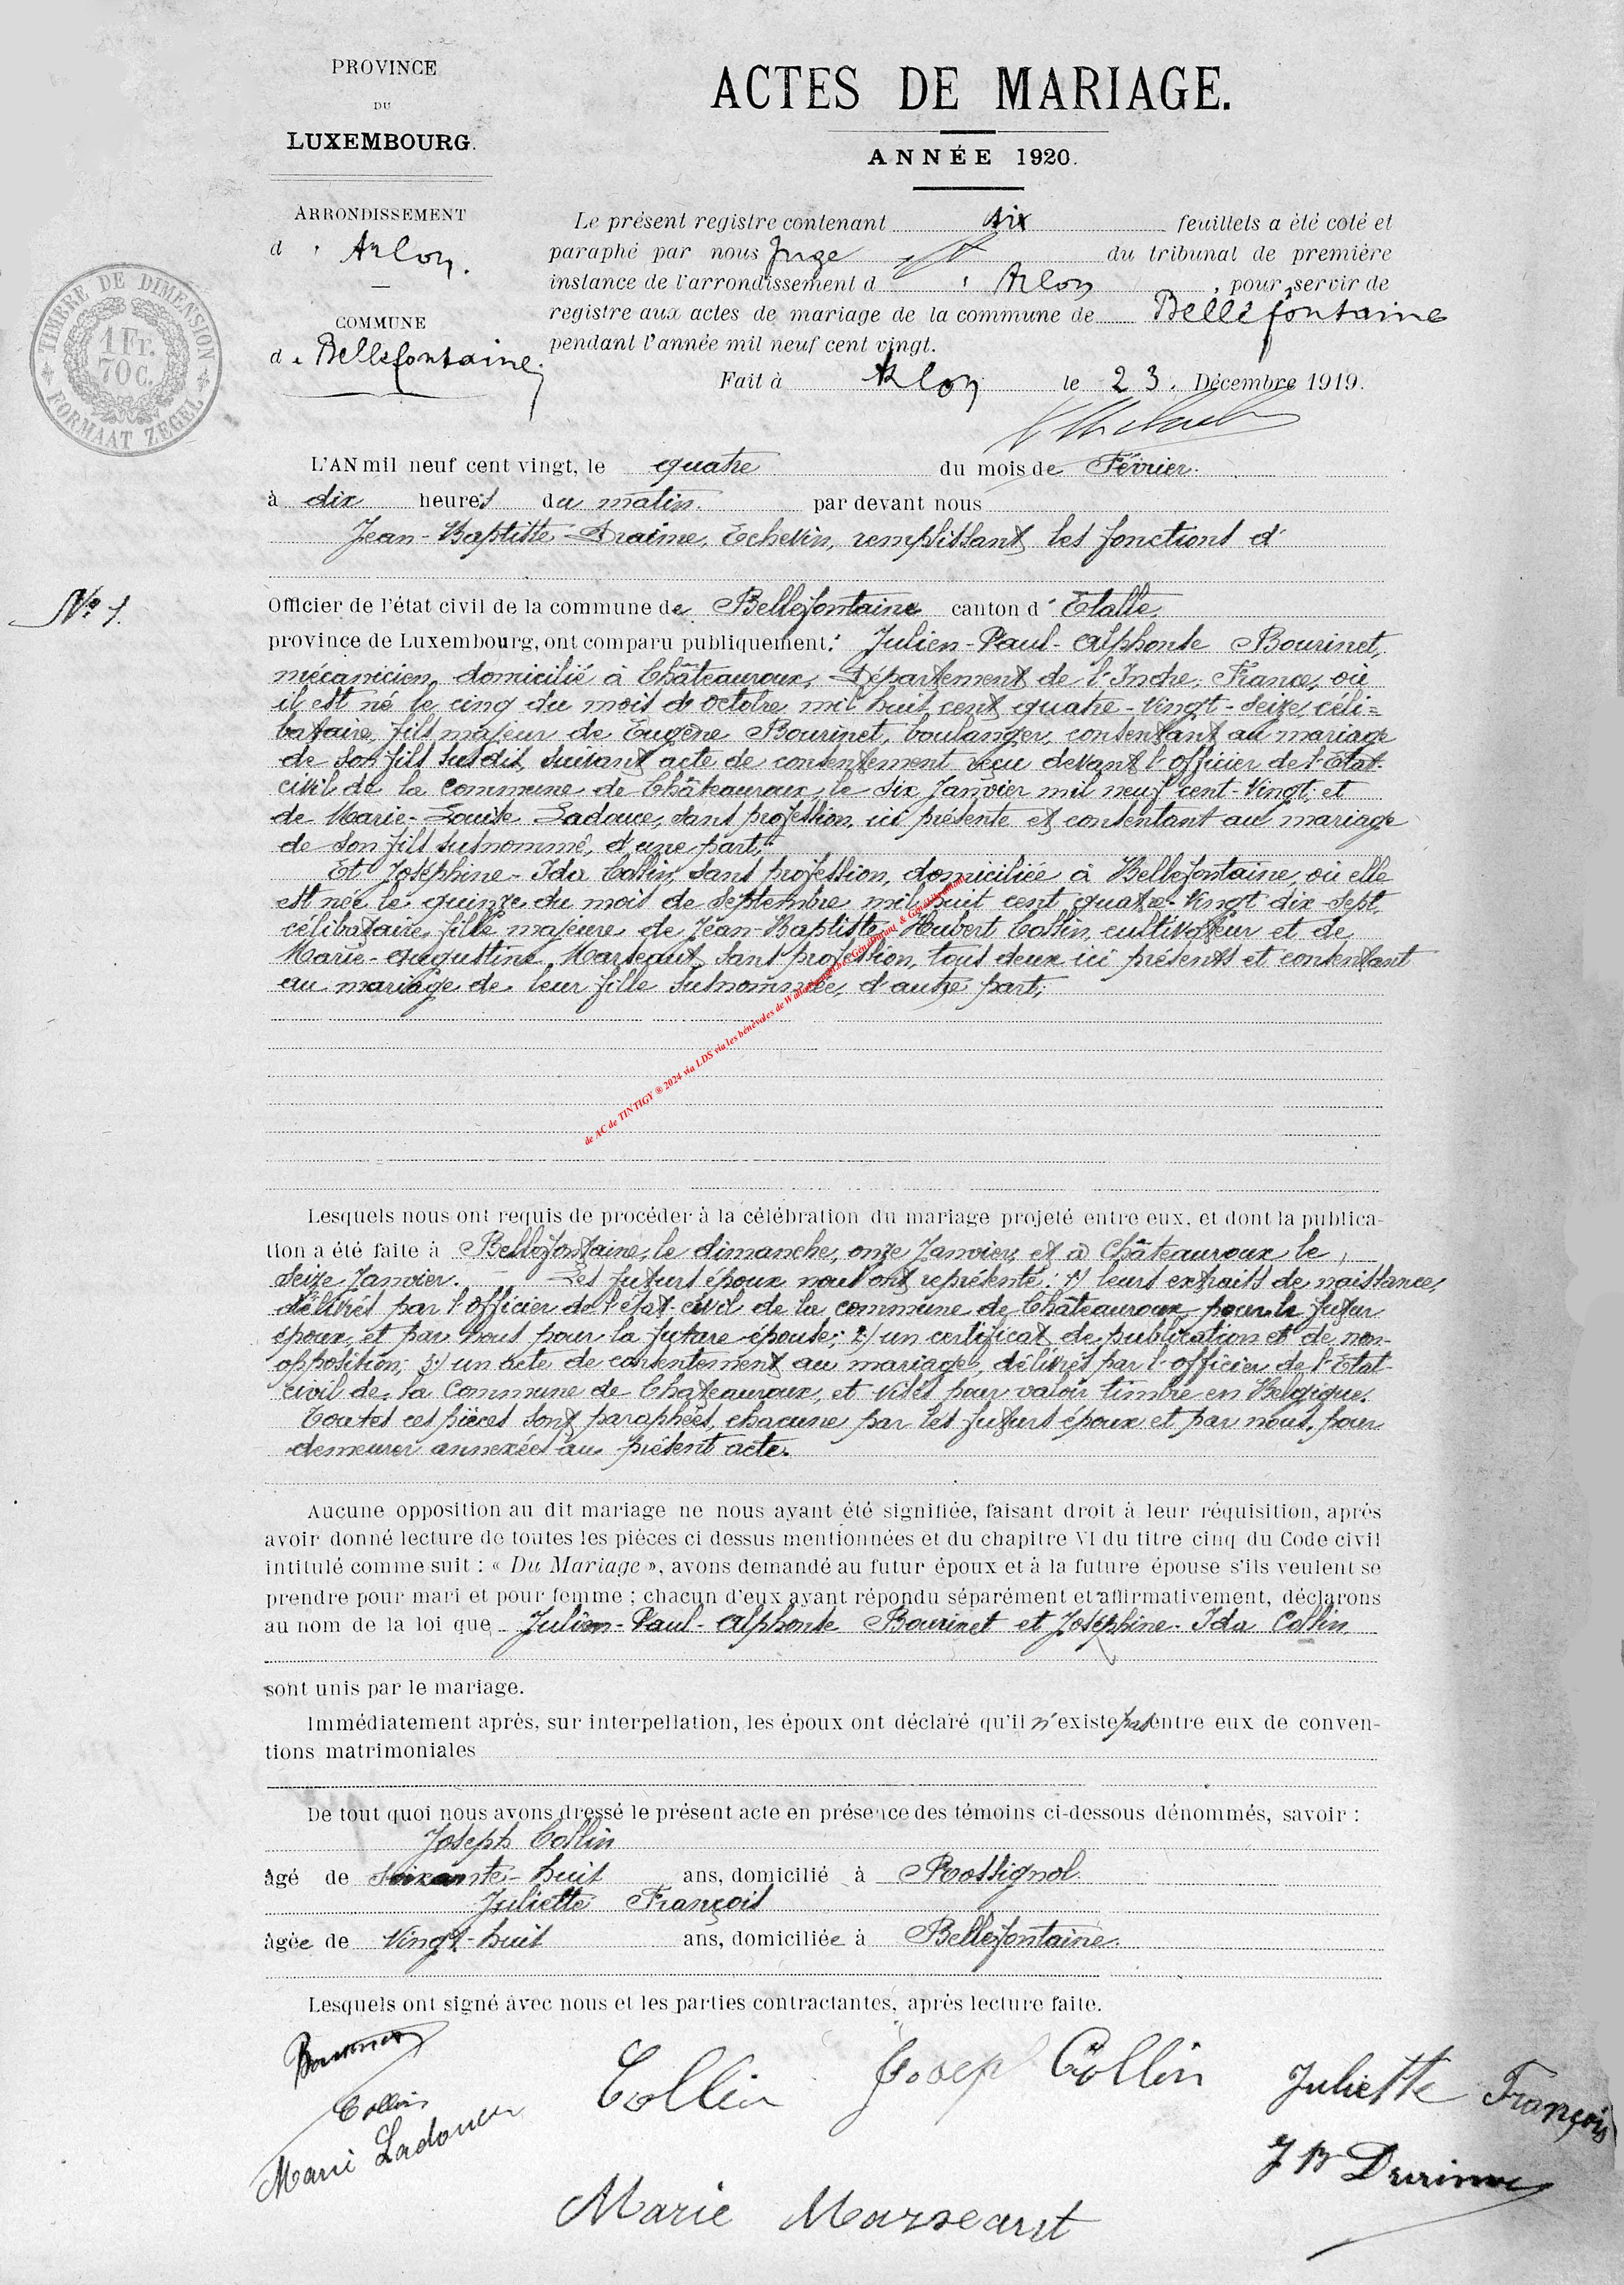 PROVINCE
DU
LUXEMBOURG.
ACTES DE MARIAGE.
ANNÉE 1920.
ARRONDISSEMENT
d' Arlon.
COMMUNE
de Bellefontaine
TIMBRE DE DIMENSION
1 Fr.
70 C.
FORMAAT ZEGEL
Le présent registre contenant six feuillets a été coté et
paraphé par nous Juge du tribunal de première
instance de l'arrondissement d' Arlon, pour servir de
registre aux actes de mariage de la commune de Bellefontaine
pendant l'année mil neuf cent vingt.
Fait à Arlon le 23. Décembre 1919.
L'AN mil neuf cent vingt, le quatre du mois de Février
à dix heures du matin. par devant nous
Jean-Baptiste Draime, Echevin, remplissant les fonctions d'
N° 1.
Officier de l'état civil de la commune de Bellefontaine canton d' Etalle
province de Luxembourg, ont comparu publiquement: Julien-Paul-Alphonse Bourinet,
mécanicien, domicilié à Châteauroux, Département de l'Indre, France, où
il est né le cinq du mois de Octobre mil huit cent quatre-vingt-seize, céli=
bataire, fils majeur de Eugène Bourinet, boulanger, consentant au mariage
de son fils susdit, suivant acte de consentement reçu devant l'officier de l'Etat-
civil de la commune de Châteauroux, le dix Janvier mil neuf cent-vingt; et
de Marie-Louise Ladouce, sans profession, ici présente et consentant au mariage
de son fils susnommé, d'une part;
Et Joséphine-Ida Collin, sans profession, domiciliée à Bellefontaine, où elle
est née le quinze du mois de Septembre mil huit cent quatre-vingt dix-sept,
célibataire, fille majeure de Jean-Baptiste-Hubert Collin, cultivateur et de
Marie-Augustine Marseaut, sans profession, tous deux ici présents et consentant
au mariage de leur fille susnommée, d'autre part;
de AC de TINTIGY ® 2024 via LDS via les bénévoles de
Lesquels nous ont requis de procéder à la célébration du mariage projeté entre eux, et dont la publica-
tion a été faite à Bellefontaine, le dimanche, onze Janvier, et à Châteauroux le
seize Janvier. Les futurs époux nous ont représenté: 1) leurs extraits de naissance,
délivrés par l'officier de l'état-civil de la commune de Châteauroux pour le futur
époux, et par nous pour la future épouse; 2) un certificat de publication et de non-
opposition; 3) un acte de consentement au mariage, délivrés par l'officier de l'Etat-
civil de la Commune de Chateauroux, et visés pour valoir timbre en Belgique.
Toutes ces pièces sont paraphées, chacune par les futurs époux et par nous, pour
demeurer annexées au présent acte.
Aucune opposition au dit mariage ne nous ayant été signifiée, faisant droit à leur réquisition, après
avoir donné lecture de toutes les pièces ci dessus mentionnées et du chapitre VI du titre cinq du Code civil
intitulé comme suit : « Du Mariage », avons demandé au futur époux et à la future épouse s'ils veulent se
prendre pour mari et pour femme ; chacun d'eux ayant répondu séparément et affirmativement, déclarons
au nom de la loi que Julien-Paul-Alphonse Bourinet et Joséphine-Ida Collin
sont unis par le mariage.
Immédiatement après, sur interpellation, les époux ont déclaré qu'il n'existe pas entre eux de conven-
tions matrimoniales
De tout quoi nous avons dressé le présent acte en présence des témoins ci-dessous dénommés, savoir :
Joseph Collin
âgé de soixante-huit ans, domicilié à Rossignol.
Juliette François
âgée de vingt-huit ans, domiciliée à Bellefontaine.
Lesquels ont signé avec nous et les parties contractantes, après lecture faite.
Bourinet
Collin
Joseph Collin
Juliette François
Collin
Marie Ladouce
J B Draime
Marie Marseaut